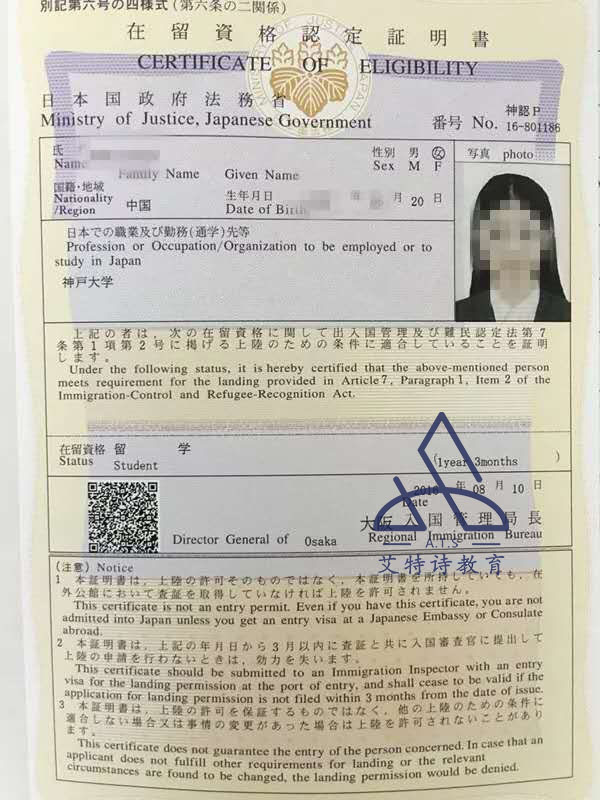 別記第六号の四様式(第六条の二関係)
在留資格認定証明書
CERTIFICATE OF ELIGIBILITY
日本国政府法務省
Ministry of Justice, Japanese Government
神認P
番号 No. 16-801186
氏
Name
Family Name Given Name
性別 男 女
Sex M F
写真 photo
国籍・地域
Nationality
/Region
中国
生年月日
Date of Birth
年 月 20 日
日本での職業及び勤務(通学)先等
Profession or Occupation/Organization to be employed or to
study in Japan
神戸大学
上記の者は、次の在留資格に関して出入国管理及び難民認定法第7
条第1項第2号に掲げる上陸のための条件に適合していることを証明
します。
Under the following status, it is hereby certified that the above-mentioned person
meets requirement for the landing provided in Article7, Paragraph1, Item 2 of the
Immigration-Control and Refugee-Recognition Act.
在留資格 留 学
Status Student
(1year 3months )
2016 年 08 月 10 日
Date
大阪入国管理局長
Director General of Osaka Regional Immigration Bureau
A.T.S
艾特诗教育
(注意) Notice
1 本証明書は、上陸の許可そのものではなく、本証明書を所持していても、在
外公館において査証を取得していなければ上陸を許可されません。
This certificate is not an entry permit. Even if you have this certificate, you are not
admitted into Japan unless you get an entry visa at a Japanese Embassy or Consulate
abroad.
2 本証明書は、上記の年月日から3月以内に査証と共に入国審査官に提出して
上陸の申請を行わないときは、効力を失います。
This certificate should be submitted to an Immigration Inspector with an entry
visa for the landing permission at the port of entry, and shall cease to be valid if the
application for landing permission is not filed within 3 months from the date of issue.
3 本証明書は、上陸の許可を保証するものではなく、他の上陸のための条件に
適合しない場合又は事情の変更があった場合は上陸を許可されないことがあり
ます。
This certificate does not guarantee the entry of the person concerned. In case that an
applicant does not fulfill other requirements for landing or the relevant
circumstances are found to be changed, the landing permission would be denied.